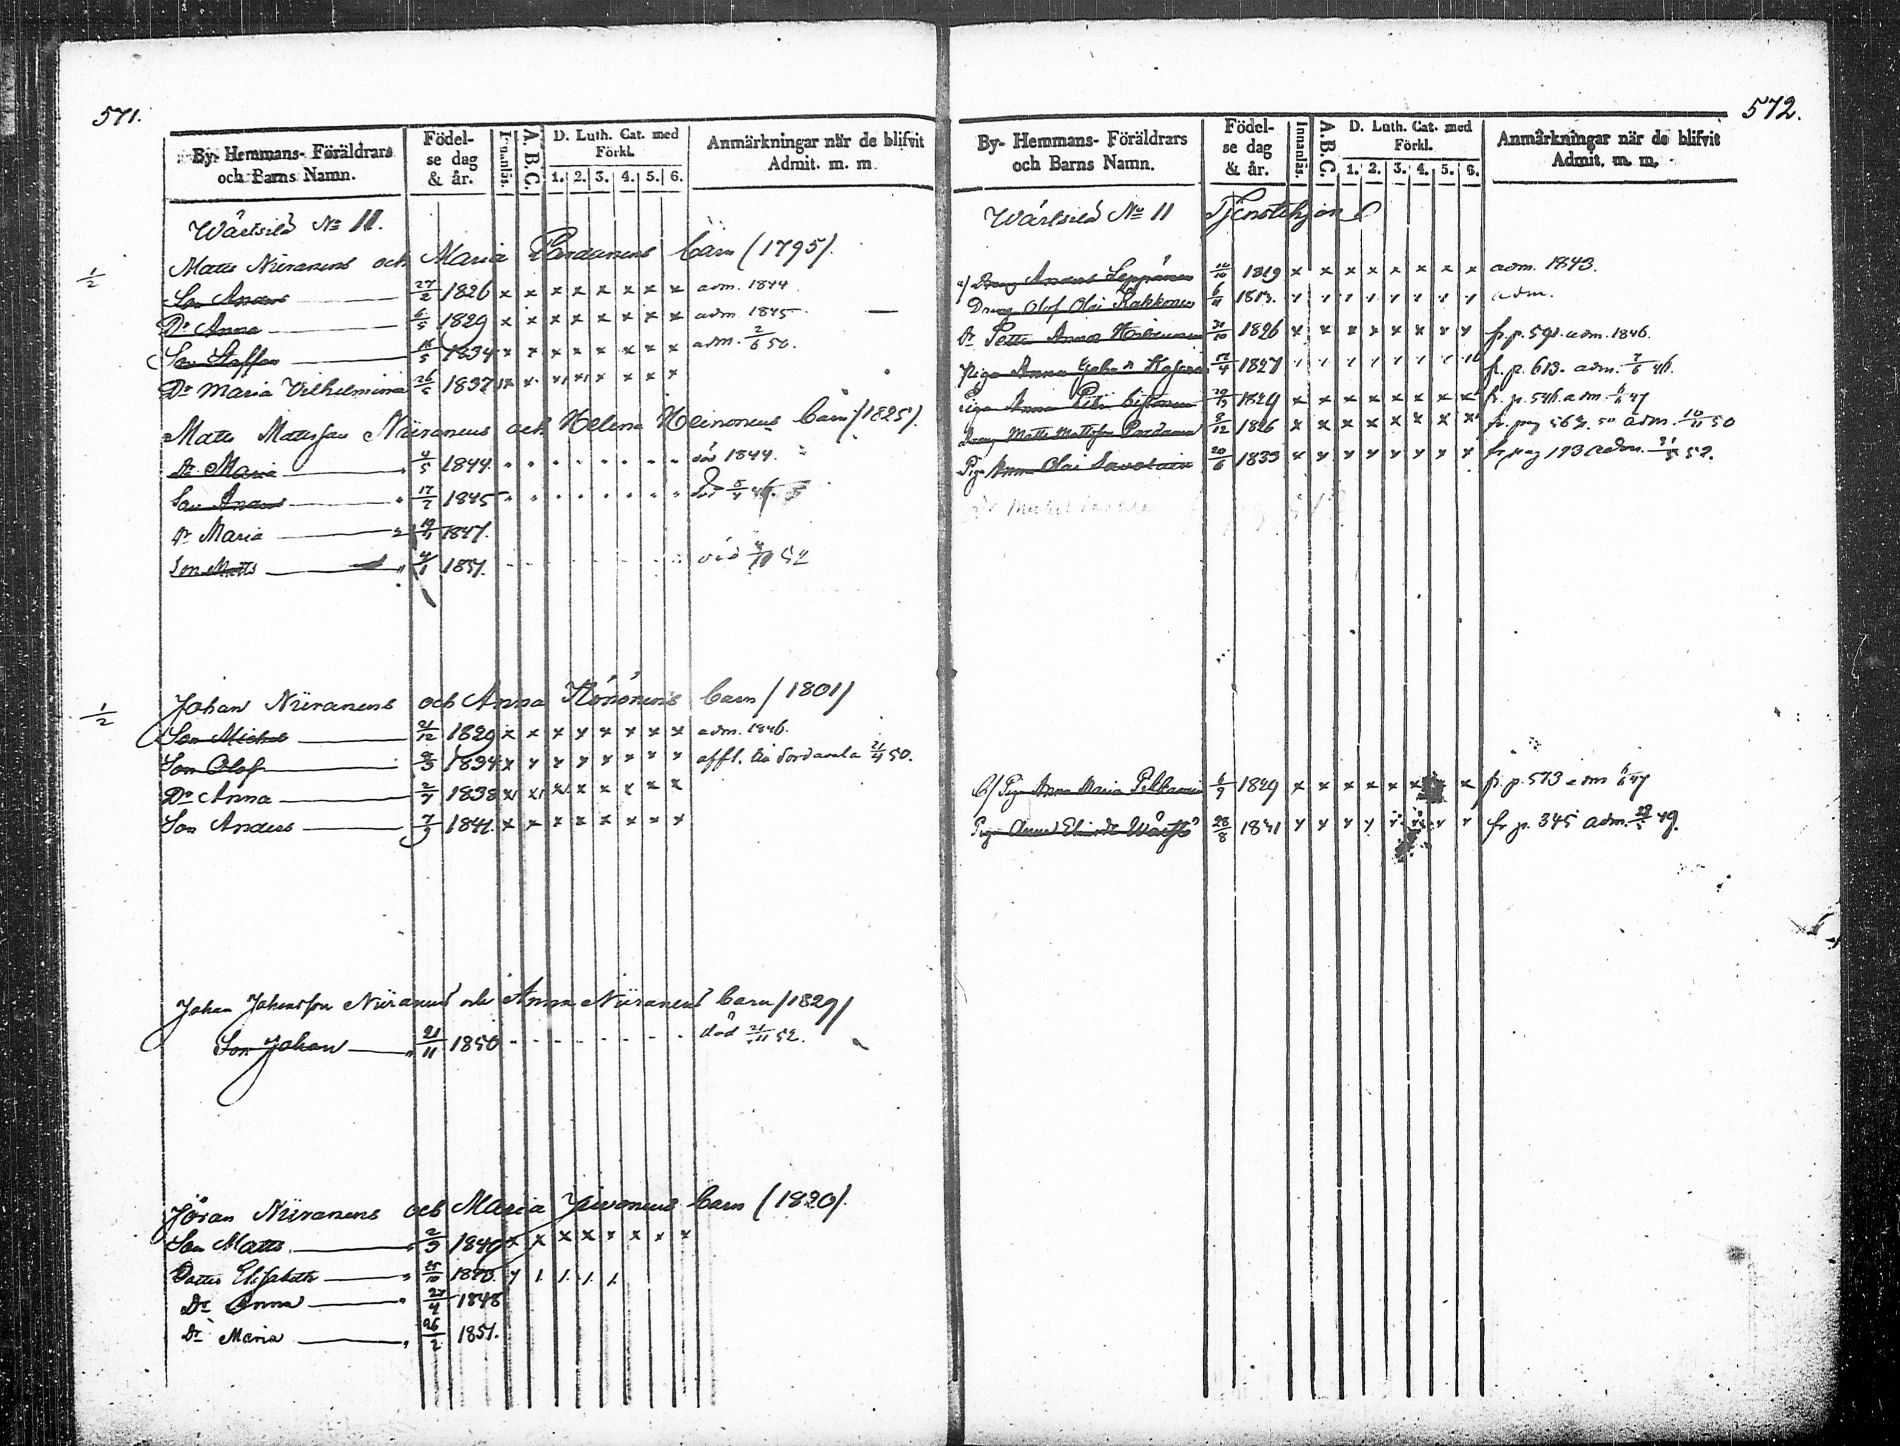 571.
By- Hemmans- Föräldrars och Barns Namn.
Födelse dag & år.
Innanläs.
A. B. C.
D. Luth. Cat. med Förkl.
1. 2. 3. 4. 5. 6.
Anmärkningar när de blifvit Admit. m. m.
Wärtsilä No 11.
1/2 Matts Niiranens och Maria Pardanens barn (1795).
Son Anders 27/2 1826 x x x x x x x x adm. 1844
Dr Anna 6/5 1829 x x x x x x x x adm. 1845
Son Staffan 16/5 1834 x x x x x x x x adm. 2/6 50.
Dr Maria Vilhelmina 26/5 1837 x x x x x x x x
Matts Mattsson Niiranens och Helena Heinonens barn (1825).
Dr Maria 4/5 1844. död 1844.
Son Anders 17/7 1845
Dr Maria 1847.
Son Matts 4/1 1851. död 52
1/2 Johan Niiranens och Anna Könönens barn (1801)
Son Michel 21/12 1829 x x x x x x x x adm. 1846.
Son Olof 1834 x x x x x x x x affl. till Sordavala 21/4 50.
Dr Anna 2/7 1838 x x x x x x x x
Son Anders 7/9 1841. x x x x x x x x
Johan Johansson Niiranens och Anna Niiranens barn (1829)
Son Johan 21/11 1850 död 21/11 52.
Jöran Niiranens och Maria barn (1820).
Son Matts 2/9 1840 x x x x x x x x
Dotter Elisabeth 25/10
Dr Anna 27/4 1848
Dr Maria 26/2 1851.
572.
By- Hemmans- Föräldrars och Barns Namn.
Födelse dag & år.
Innanläs.
A. B. C.
D. Luth. Cat. med Förkl.
1. 2. 3. 4. 5. 6.
Anmärkningar när de blifvit Admit. m. m.
Wärtsilä No 11 Tjenstehjon
a/ Dreng Anders Leppänen 1819 x x x x x x x x adm. 1843.
Dreng Olof Olai Kakkonen 6/11 1813. adm.
Dr Petter Anders 1826 x x x x x x x x fr. p. 591. adm. 1846.
Piga Anna 12/4 1827 fr. p. 613. adm. 7/6 46.
Piga Anna 1829 x x x x x x x x fr. p. 546 adm. 6/6 47
Dreng Matts Mattsson Pardanen 8/12 1826 x x x x x x x x adm. 50
Piga Anna Olai Savolain 20/6 1833 x x x x x x x x fr pag 193 adm. 52.
b/ Piga Anna Maria Pelkonen 6/7 1829 x x x x x x x x fr. p. 573 adm 6/6 47
Piga Anna 28/8 1831 fr p. 345 adm. 49.